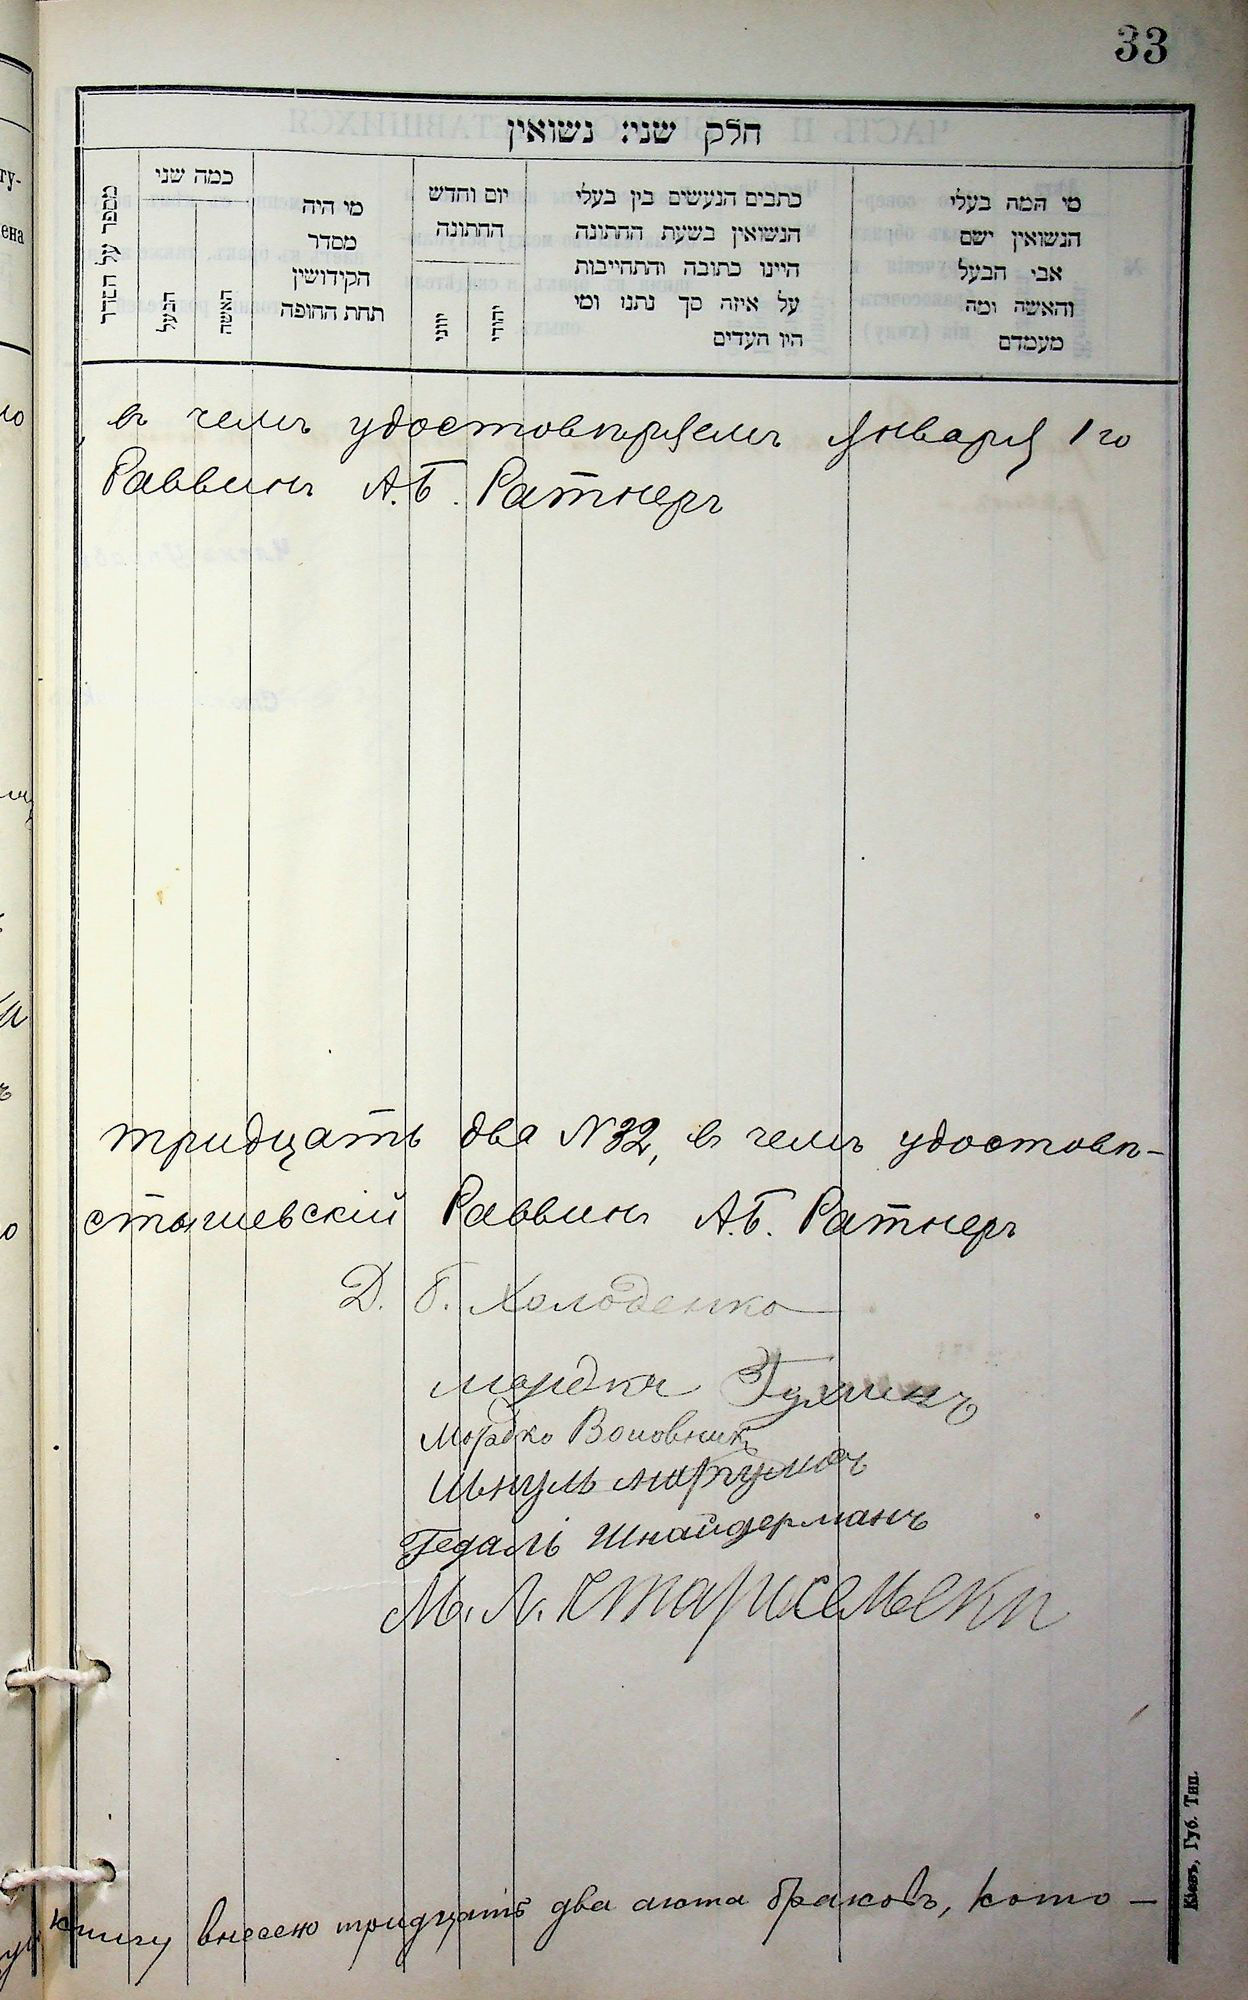 33
חלק שני: נשואין
מספר על הסדר
כמה שני
הבעל
האשה
מי היה
מסדר
הקידושין
תחת החופה
יום וחדש
החתונה
יווני
יהודי
כתבים הנעשים בין בעלי
הנשואין בשעת החתונה
היינו כתובה והתחייבות
על איזה סך נתנו ומי
היו העדים
מי המה בעלי
הנשואין ישם
אבי הבעל
והאשה ומה
מעמדם
въ чемъ удостовѣряемъ января 1го
Раввинъ А.Б. Ратнеръ
тридцать два №32, въ чемъ удостовѣ-
стышевскій Раввинъ А.Б. Ратнеръ
Д. Б. Холоденко
мордко
Мордко
Шнуль
Гедалі Шнайдерманъ
М. Л.
книгу внесено тридцать два акта браковъ, кото-
Кіевъ, Губ. Тип.